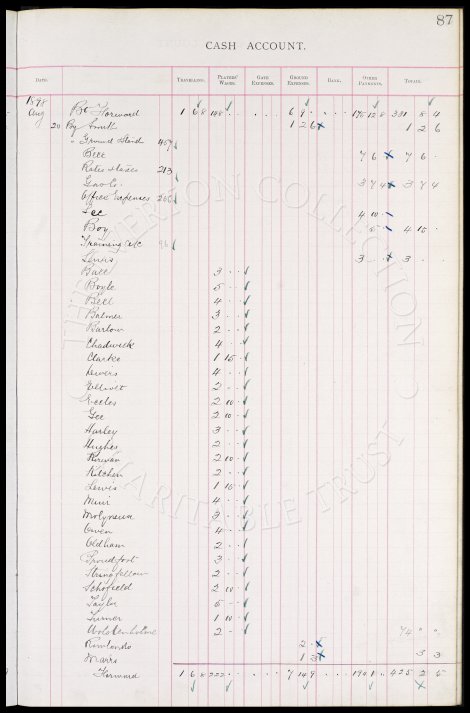 87
CASH ACCOUNT.
DATE. TRAVELLING. PLAYERS' WAGES. GATE EXPENSES. GROUND EXPENSES. BANK. OTHER PAYMENTS. TOTALS.
1898
Aug Bt Forward 1 6 8 6 9 331 8 4
20 By 1 2 6 1 2 6
" Ground Stand 457
Bell 7 6 7 6
Rates & taxes 213
Gas Co. 3 7 4 3 7 4
Office Expenses 200
Lee 4 10
Boy 5 4 15
Training &c 96
3 3
Ball 3
Boyle 5
Bell 4
Balmer 3
Barlow 2
Chadwick 4
Clarke 1 15
4
Elliott 2
Eccles 2 10
Gee 2 10
Harley 3
Hughes 2
Kirwan 2 10
Kitchen 2
Lewis 1 15
Muir 4
Molyneux 3
Owen 4
Oldham 2
Proudfoot 3
Stringfellow 2
Schofield 2 10
Taylor 5
Turner 1 10
Wolstenholme 2 74 " "
2
1 3 3 3
Forward 1 6 8 222 7 14 9 425 2 5
THE EVERTON COLLECTION CHARITABLE TRUST